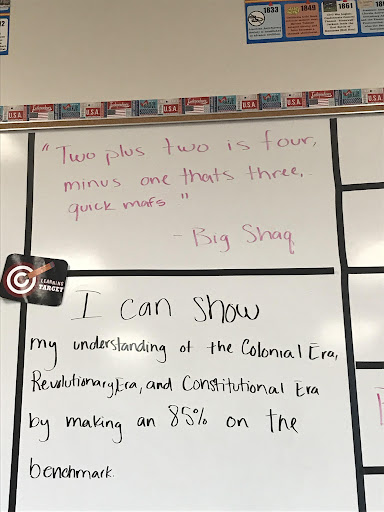 1833
1849
1861
U.S.A.
U.S.A.
U.S.A.
U.S.A.
U.S.A.
"Two plus two is four,
minus one thats three,
quick mafs"
- Big Shaq
LEARNING
TARGET
I can show
my understanding of the Colonial Era,
Revolutionary Era, and Constitutional Era
by making an 85% on the
benchmark.